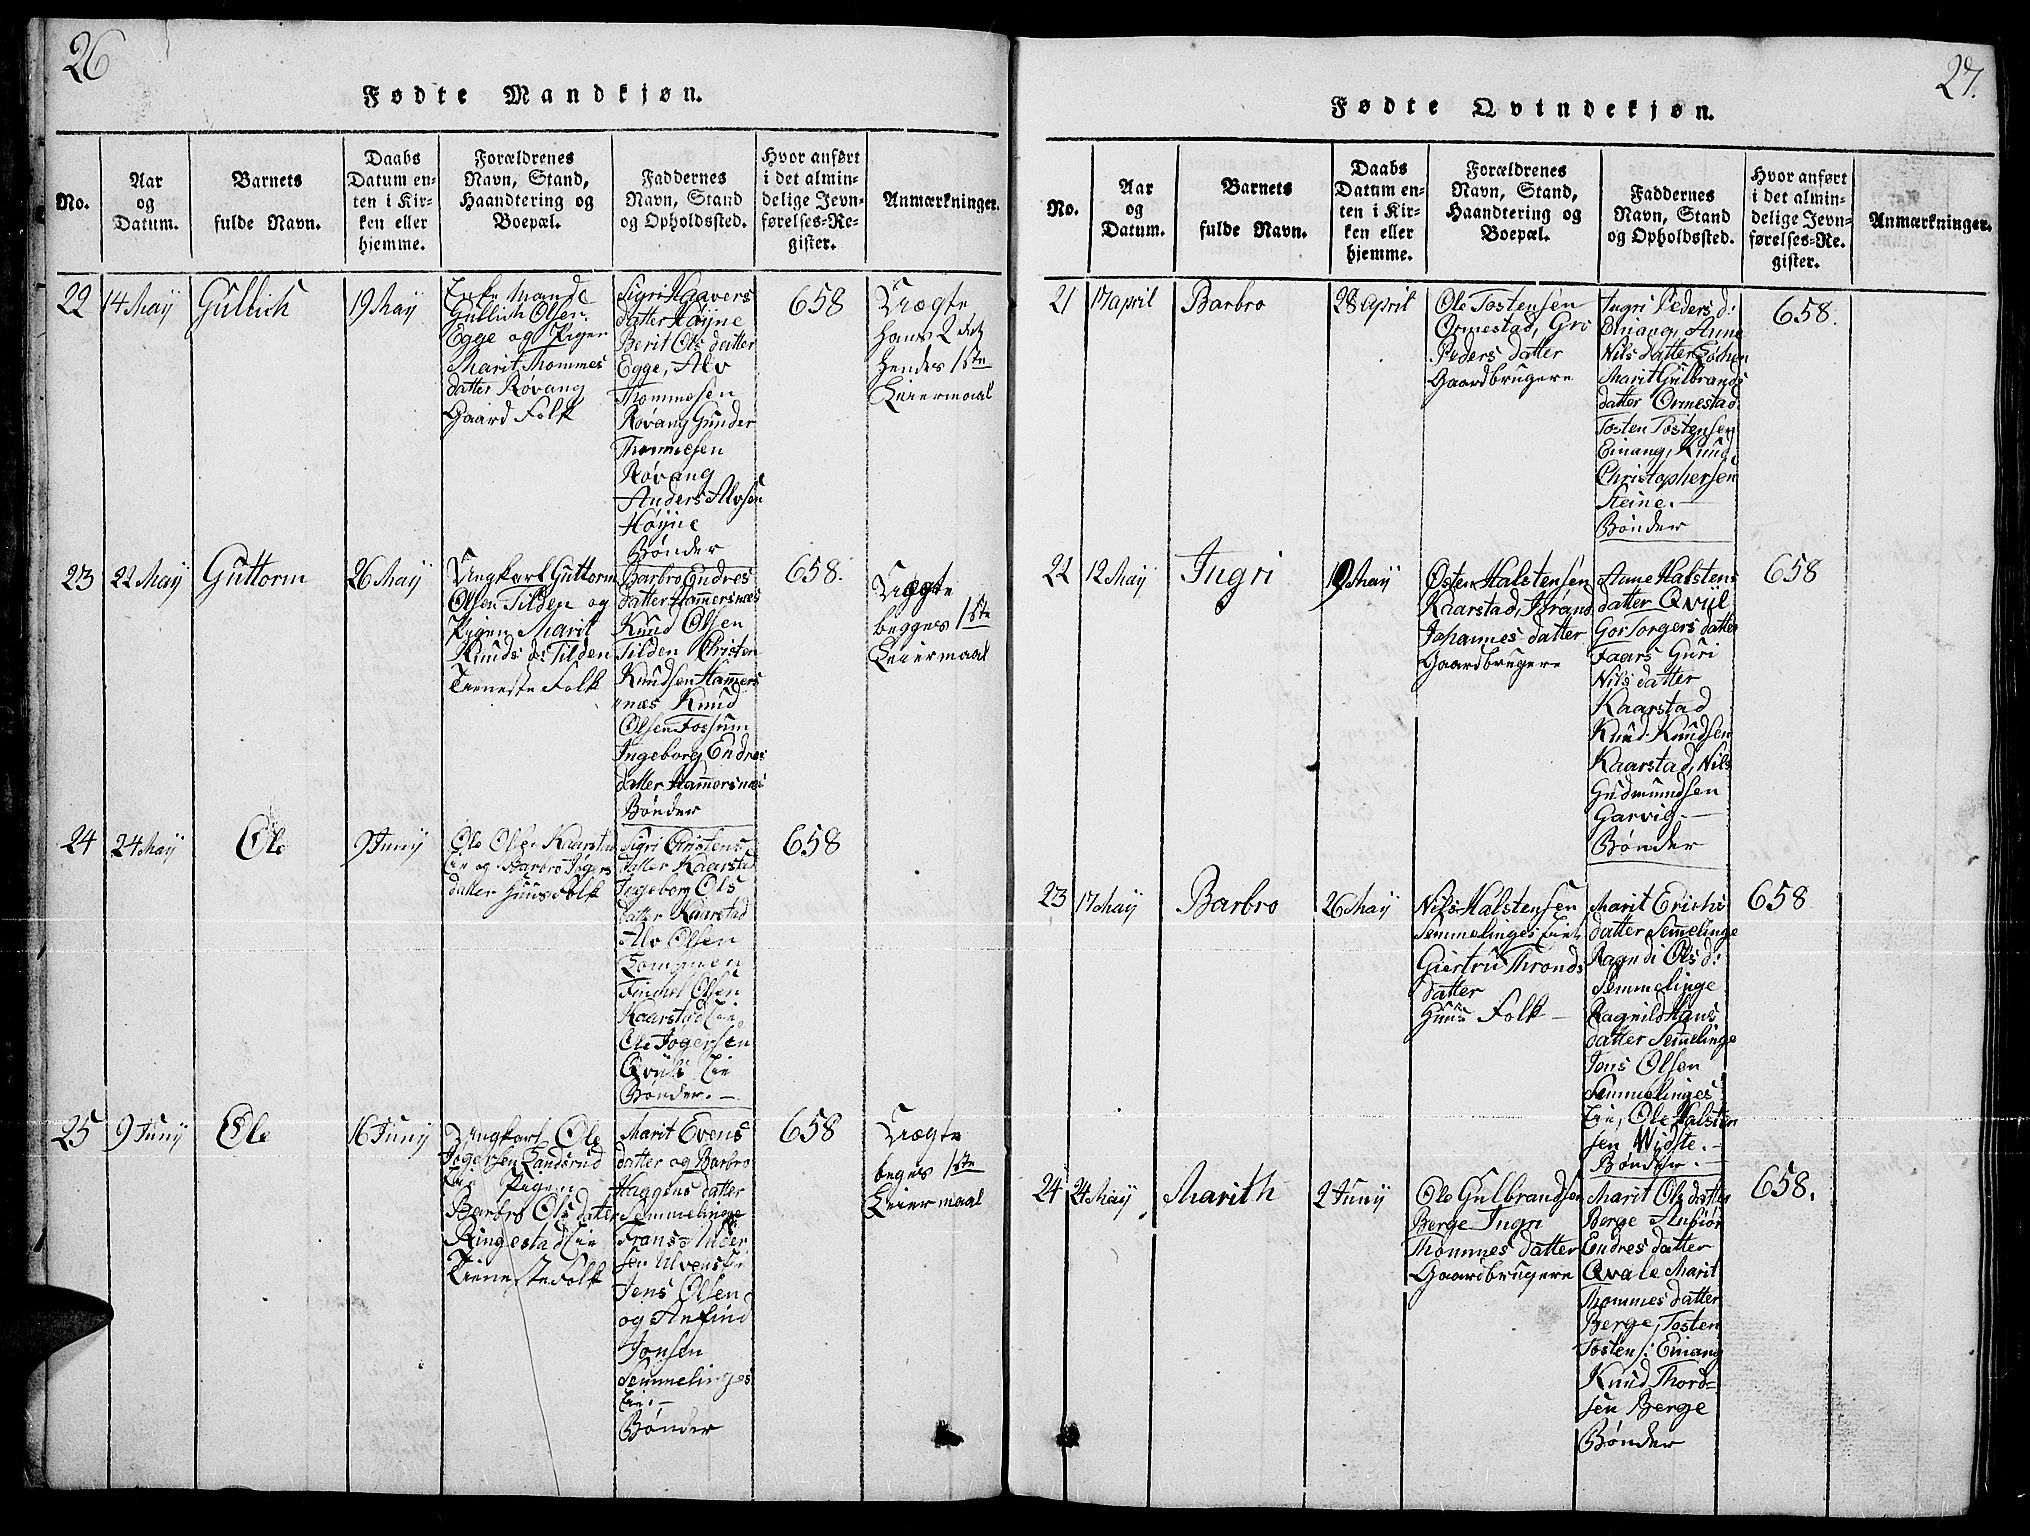 26
Fødte Mandkjøn.
No.
Aar
og
Datum.
Barnets
fulde Navn.
Daabs
Datum en-
ten i Kir-
ken eller
hjemme.
Forældrenes
Navn, Stand,
Haandtering og
Boepæl.
Faddernes
Navn, Stand
og Opholdssted.
Hvor anført
i det almin-
delige Jevn-
førelses-Re-
gister.
Anmærkninger.
22
14 Maÿ
Gullich
19 Maÿ
Enke Mand
Gullich Olsen
Egge og Pigen
Marit Thommes
datter Røvang
Gaard Folk
Sigri Havers
datter Høÿne
Berit Ols datter
Egge, Alv
Thommesen
Røvang Gunder
Thommesen
Røvang
Anders Alvsen
Høÿne
Bønder
658
Uægte
hans 2det
hendes 1ste
Leiermaal
23
22 Maÿ
Guttorm
26 Maÿ
Ungkarl Guttorm
Olsen Tilden og
Pigen Marit
Knuds d: Tilden
Tieneste Folk
Barbro Endres
datter Hammersnæs
Knud Olsen
Tilden Christen
Knudsen Hammers
næs Knud
Olsen Fossum
Ingeborg Endres
datter Hammersnæs
Bønder
658.
Uægte
begges 1ste
Leiermaal
24
24 Maÿ
Ole
9 Junÿ
Ole Olsen Kaarstad
Eie og Barbro Jogers
datter Huusfolk
Sigri Christens
datter Kaarstad
Ingeborg Ols
datter Kaarstad
Alv Olsen
Sommen
Finchel Olsen
Kaarstad Eie
Ole Jogersen
Qviils Eie
Bønder.
658
25
9 Junÿ
Ole
16 Junÿ
Ungkarl Ole
Jogersen Sandsrud
Eie Pigen
Barbro Ols datter
Ringestad Eie
Tieneste Folk
Marit Evens
datter og Barbro
Haggens datter
Semmelinge
Frans Ander
sen Ulvensti
Jens Olsen
og Anfind
Jonsen
Semmelinges
Eie.
Bønder
658
Uægte
beges 1ste
Leiermaal
27.
Fødte Qvindekjøn.
No.
Aar
og
Datum.
Barnets
fulde Navn.
Daabs
Datum en-
ten i Kir-
ken eller
hjemme.
Forældrenes
Navn, Stand,
Haandtering og
Boepæl.
Faddernes
Navn, Stand
og Opholdssted.
Hvor anført
i det almin-
delige Jevn-
førelses-Re-
gister.
Anmærkninger.
21
17 april
Barbro
28 april
Ole Tostensen
Ormestad, Gro
Peders datter
Gaardbrugere
Ingri Peders d:
Einang, Anne
Nils datter
Marit Gulbrands
datter Ormestad
Tosten Tostensen
Einang, Knud
Christophersen
Steine.
Bønder
658.
22
12 Maÿ
Ingri
19 Maÿ
Østen Halstensen
Kaarstad, Trønd
Johannes datter
Gaardbrugere
Anne Halstens
datter Qviil
Gor Torgers datter
Faars Guri
Nils datter
Kaarstad
Knud Knudsen
Kaarstad, Nils
Gudmundsen
Garvig.
Bønder
658
23
17 Maÿ
Barbro
26 Maÿ
Nils Halstensen
Semmelinges Eie
Giertru Thronds
datter
Huus Folk
Marit Erichs
datter Semmelinge
Ragndi Ols d:
Semmelinge
Ragnild Hans
datter Semmelinge
Jens Olsen
Semmelinges
Eie, Ole Halsten
sen Wigste.
Bønder.
658
24
24 Maÿ
Marith
2 Junÿ
Ole Gulbrandsen
Berge Ingri
Thommes datter
Gaardbrugere
Marit Ols datter
Berge Anbiør
Endres datter
Qvale Marit
Thommes datter
Berge, Tosten
Tostens: Einang
Knud Thord-
sen Berge
Bønder
658.